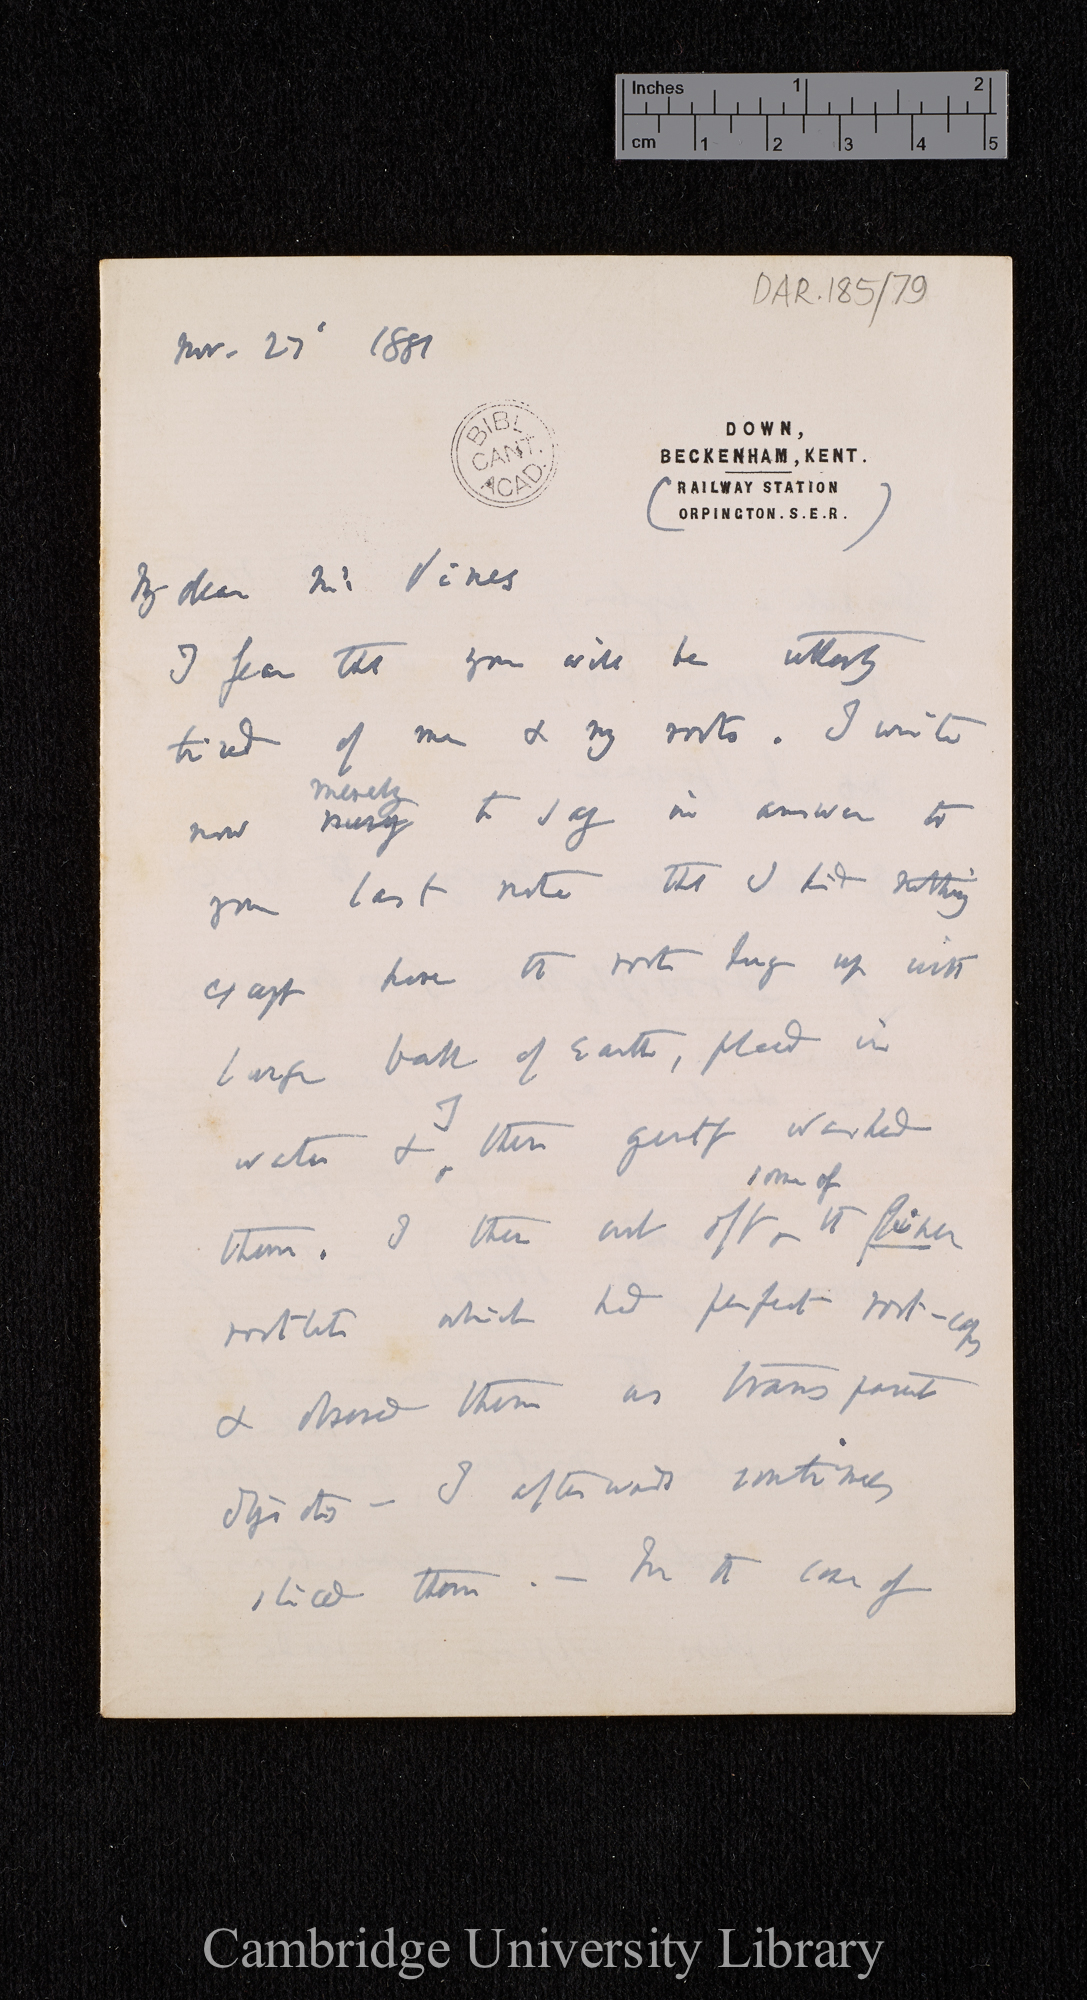 Inches 1 2
cm 1 2 3 4 5
DAR.185/79
Nov. 27 1881
BIBL. CANT. ACAD.
DOWN,
BECKENHAM, KENT.
(RAILWAY STATION
ORPINGTON. S.E.R.)
My dear Mr. Vines
I fear that you will be utterly
tired of me & my roots. I write
merely
now to say in answer to
your last note that I did nothing
except have the roots dug up with
large ball of earth, placed in
I
water & then gently washed
some of
them. I then cut off the finer
rootlets which had perfect root-caps
& observed them as transparent
objects — I afterwards sometimes
sliced them. — In the case of
Cambridge University Library